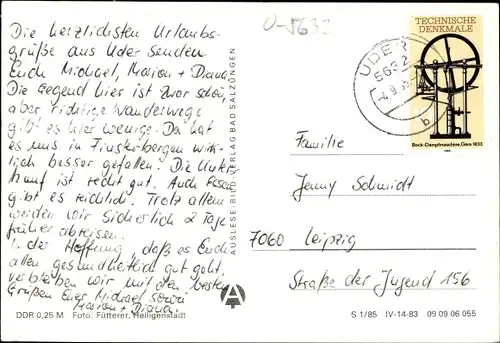 Die herzlichsten Urlaubs-
grüße aus Uder senden
Euch Michael, Marion + Diana.
Die Gegend hier ist zwar schön,
aber richtige Wanderwege
gibt es hier wenige. Da hat
es uns in Finsterbergen wirk-
lich besser gefallen. Die Unter-
kunft ist recht gut. Auch Essen
gibt es reichlich. Trotz allem
werden wir sicherlich 2 Tage
früher abreisen.
In der Hoffnung, daß es Euch
allen gesundheitlich gut geht,
verbleiben wir mit den besten
Grüßen Euer Michael sowie
Marion + Diana.
DDR 0,25 M Foto: Fütterer, Heiligenstadt
AUSLESE-BILD-VERLAG BAD SALZUNGEN
O-5632
UDER
5632
b
TECHNISCHE
DENKMALE
Bock-Dampfmaschine, Gera 1833
Familie
Jenny Schmidt
7060 Leipzig
Straße der Jugend 156
S 1/85 IV-14-83 09 09 06 055